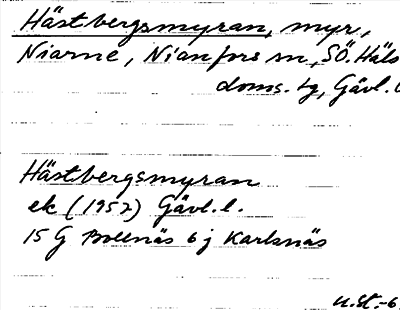 Hästbergsmyran, myr,
Niarne, Nianfors sn, SÖ. Häls
doms. tg, Gävl. l
Hästbergsmyran
ek (1957) Gävl. l.
15 G Bollnäs 6 j Karlsnäs
U.St. -6